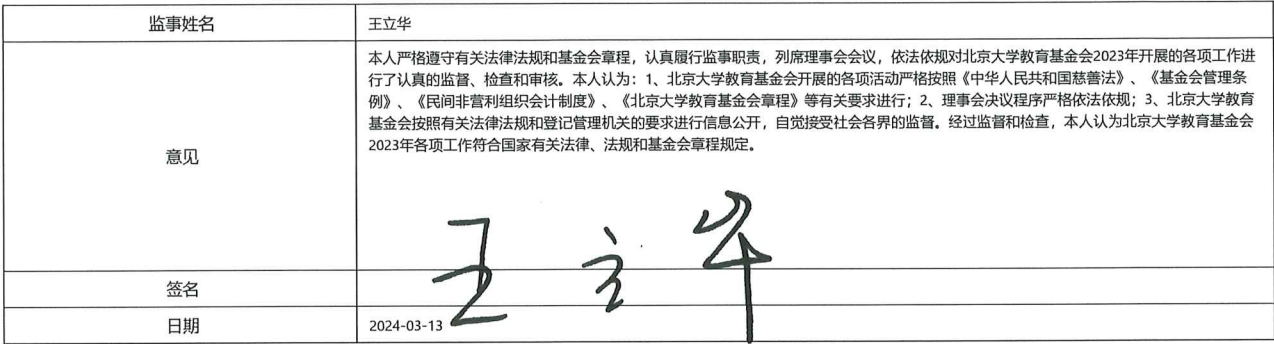 监事姓名
王立华
意见
本人严格遵守有关法律法规和基金会章程，认真履行监事职责，列席理事会会议，依法依规对北京大学教育基金会2023年开展的各项工作进
行了认真的监督、检查和审核。本人认为：1、北京大学教育基金会开展的各项活动严格按照《中华人民共和国慈善法》、《基金会管理条
例》、《民间非营利组织会计制度》、《北京大学教育基金会章程》等有关要求进行；2、理事会决议程序严格依法依规；3、北京大学教育
基金会按照有关法律法规和登记管理机关的要求进行信息公开，自觉接受社会各界的监督。经过监督和检查，本人认为北京大学教育基金会
2023年各项工作符合国家有关法律、法规和基金会章程规定。
签名
王立华
日期
2024-03-13